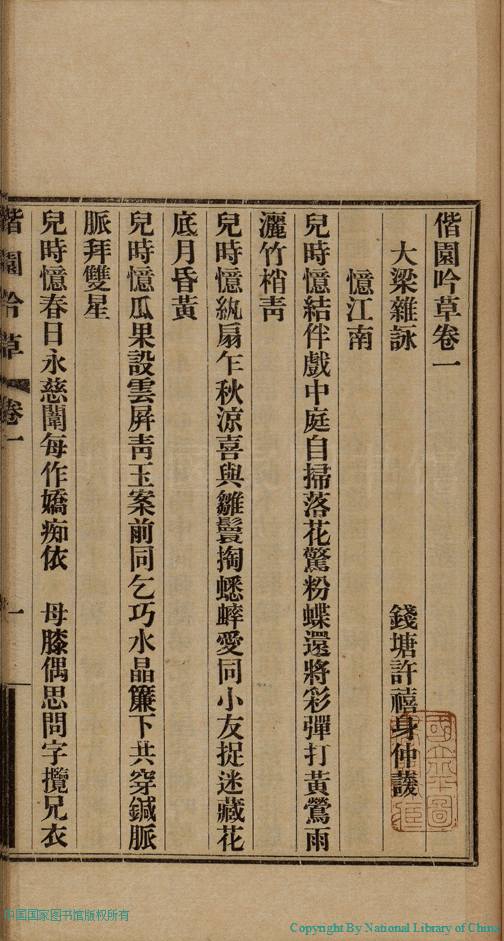 偕園吟草卷一
大梁雜詠　錢塘許禧身仲萲
憶江南
兒時憶結伴戲中庭自掃落花驚粉蝶還將彩彈打黃鶯雨
灑竹梢靑
兒時憶紈扇乍秋涼喜與雛鬟掏蟋蟀愛同小友捉迷藏花
底月昏黃
兒時憶瓜果設雲屛靑玉案前同乞巧水晶簾下共穿鍼脈
脈拜雙星
兒時憶春日永慈闈每作嬌痴依　母膝偶思問字攬兄衣
偕園吟草　卷一　一
中国国家图书馆版权所有
Copyright By National Library of China